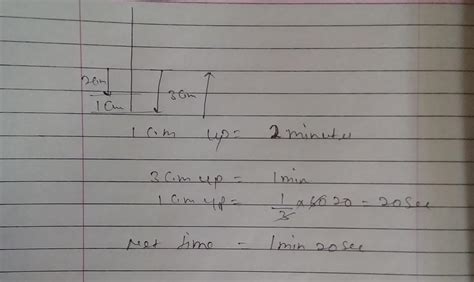 2cm
1cm
3cm
1cm up = 2 minute
3cm up = 1min
1cm up = 1/3 x 60 20 - 20 Sec
Net time - 1min 20 Sec